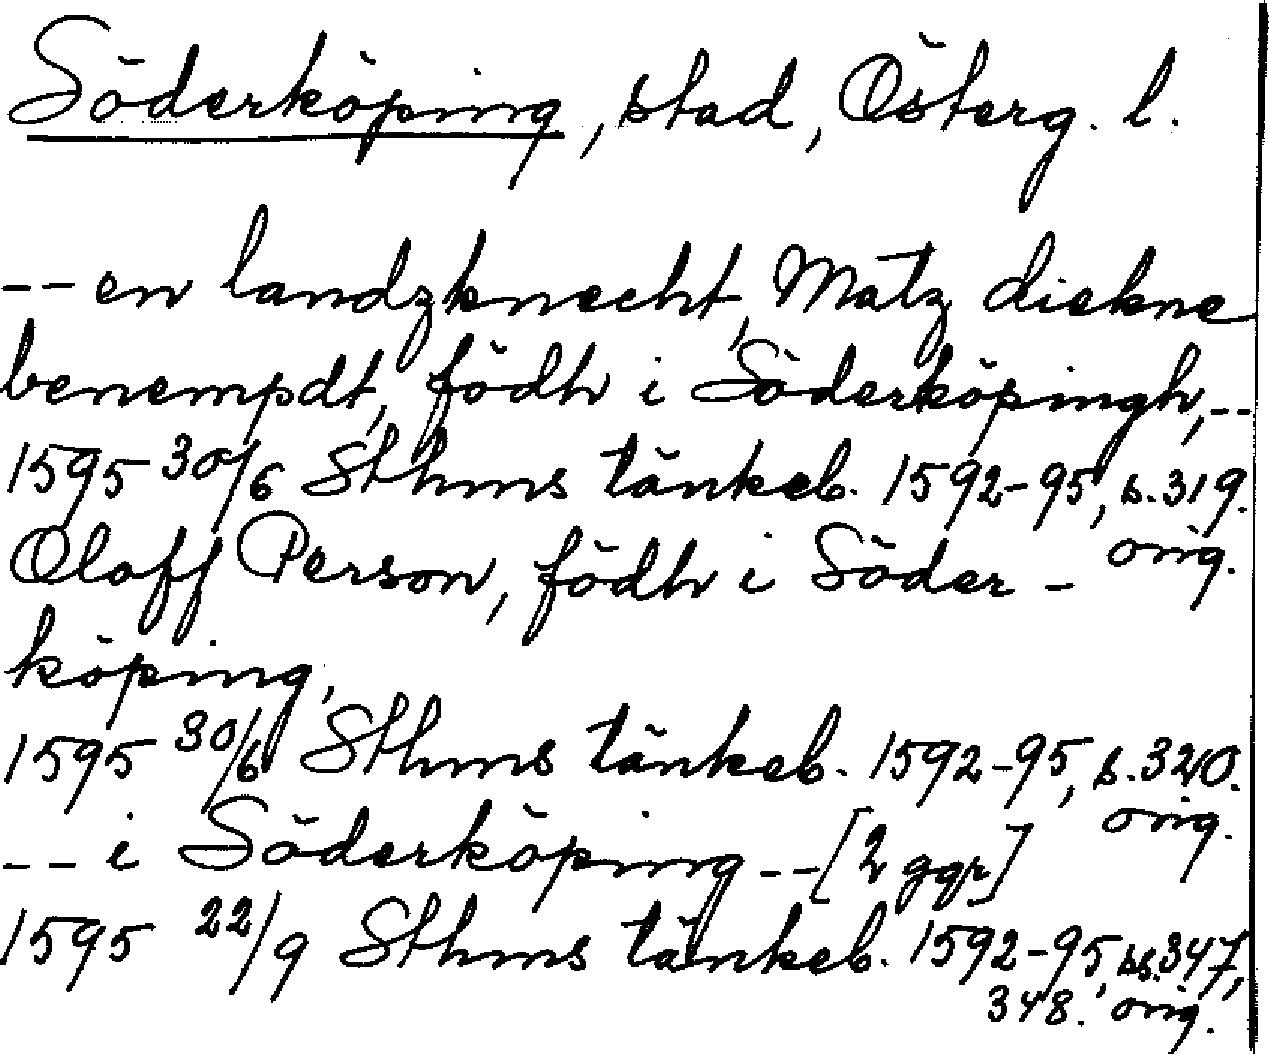 Söderköping, stad, Österg. l.
-- en landzknecht, Matz diekne
benempdt, födh i Söderköpingh, --
1595 30/6 Sthms tänkeb. 1592-95, s. 319.
orig.
Oloff Person, födh i Söder-
köping,
1595 30/6 Sthms tänkeb. 1592-95, s. 320.
orig.
-- i Söderköping -- [2 ggr]
1595 22/9 Sthms tänkeb. 1592-95, ss. 347,
348. orig.